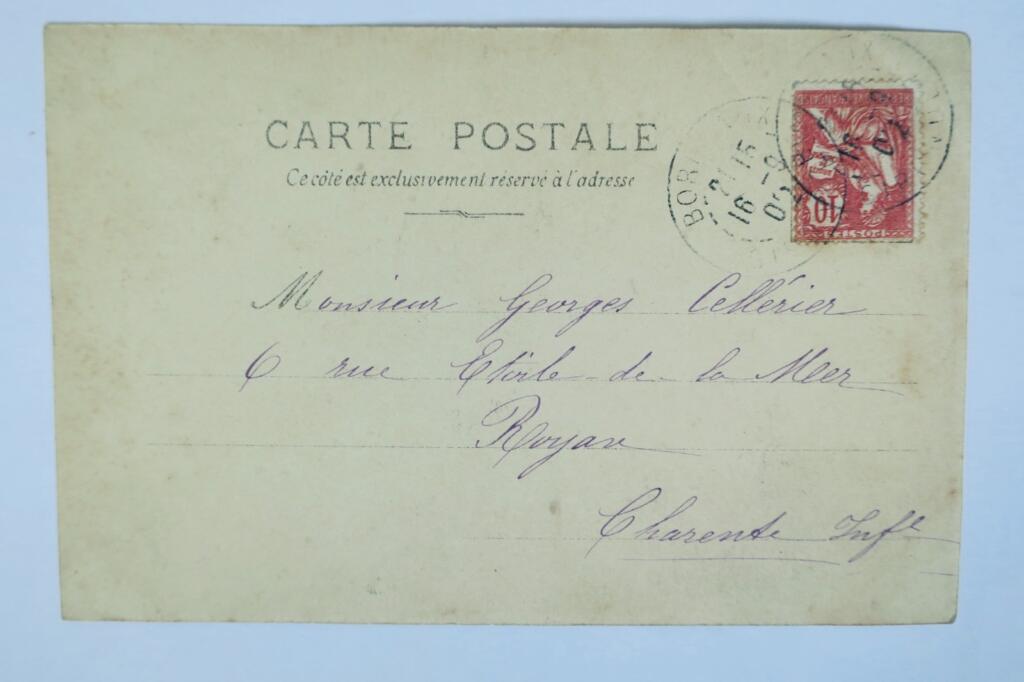 CARTE POSTALE
Ce côté est exclusivement réservé à l'adresse
BOR
21 15
16 -9
02
10
POSTES
Monsieur Georges Cellérier
6 rue Etoile de la Meer
Royan
Charente Infe